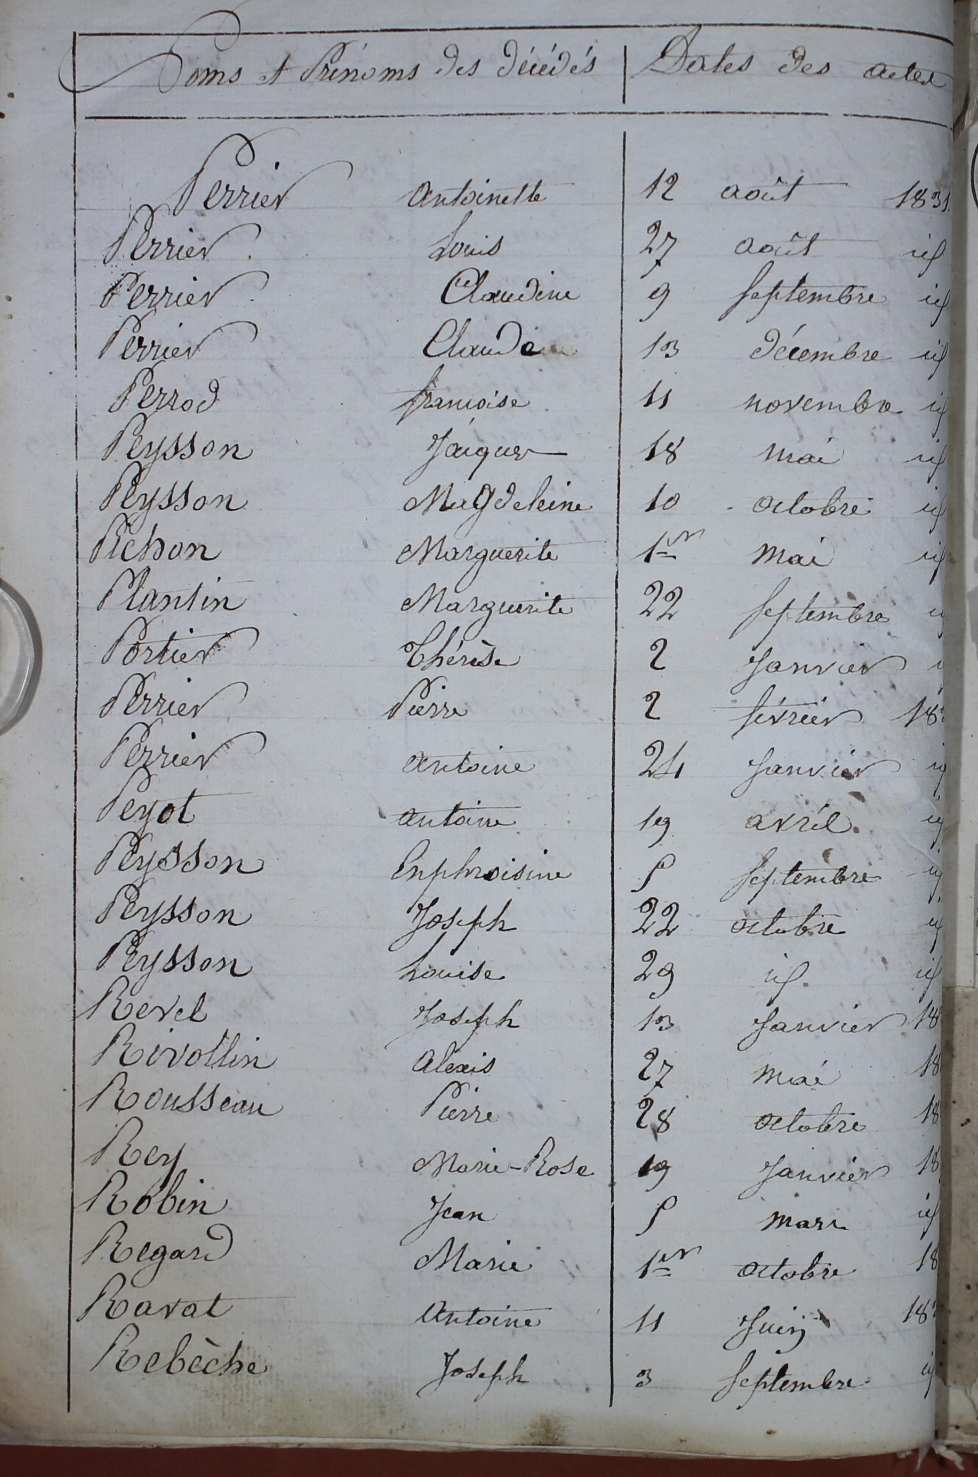 Noms et Prénoms des décédés Dates des actes
Perrier Antoinette 12 août 1831
Perrier Louis 27 août id
Perrier Claudine 9 septembre id
Perrier Claude 13 décembre id
Perrod françoise 11 novembre id
Peysson Jacques 18 mai id
Peysson Magdeleine 10 octobre id
Pichon Marguerite 1er mai id
Plantin Marguerite 22 septembre
Portier Thérèse 2 Janvier
Perrier Pierre 2 février 18
Perrier antoine 24 Janvier id
Peyot antoine 19 avril id
Peysson Enphroisine 5 septembre id
Peysson Joseph 22 octobre id
Peysson Louise 29 id id
Revel Joseph 13 Janvier 18
Rivollin alexis 27 mai 18
Rousseau Pierre 28 octobre 18
Rey Marie-Rose 19 Janvier 18
Robin Jean 5 mars id
Regard Marie 1er octobre 18
Ravat Antoine 11 Juin 18
Rebèche Joseph 3 septembre id